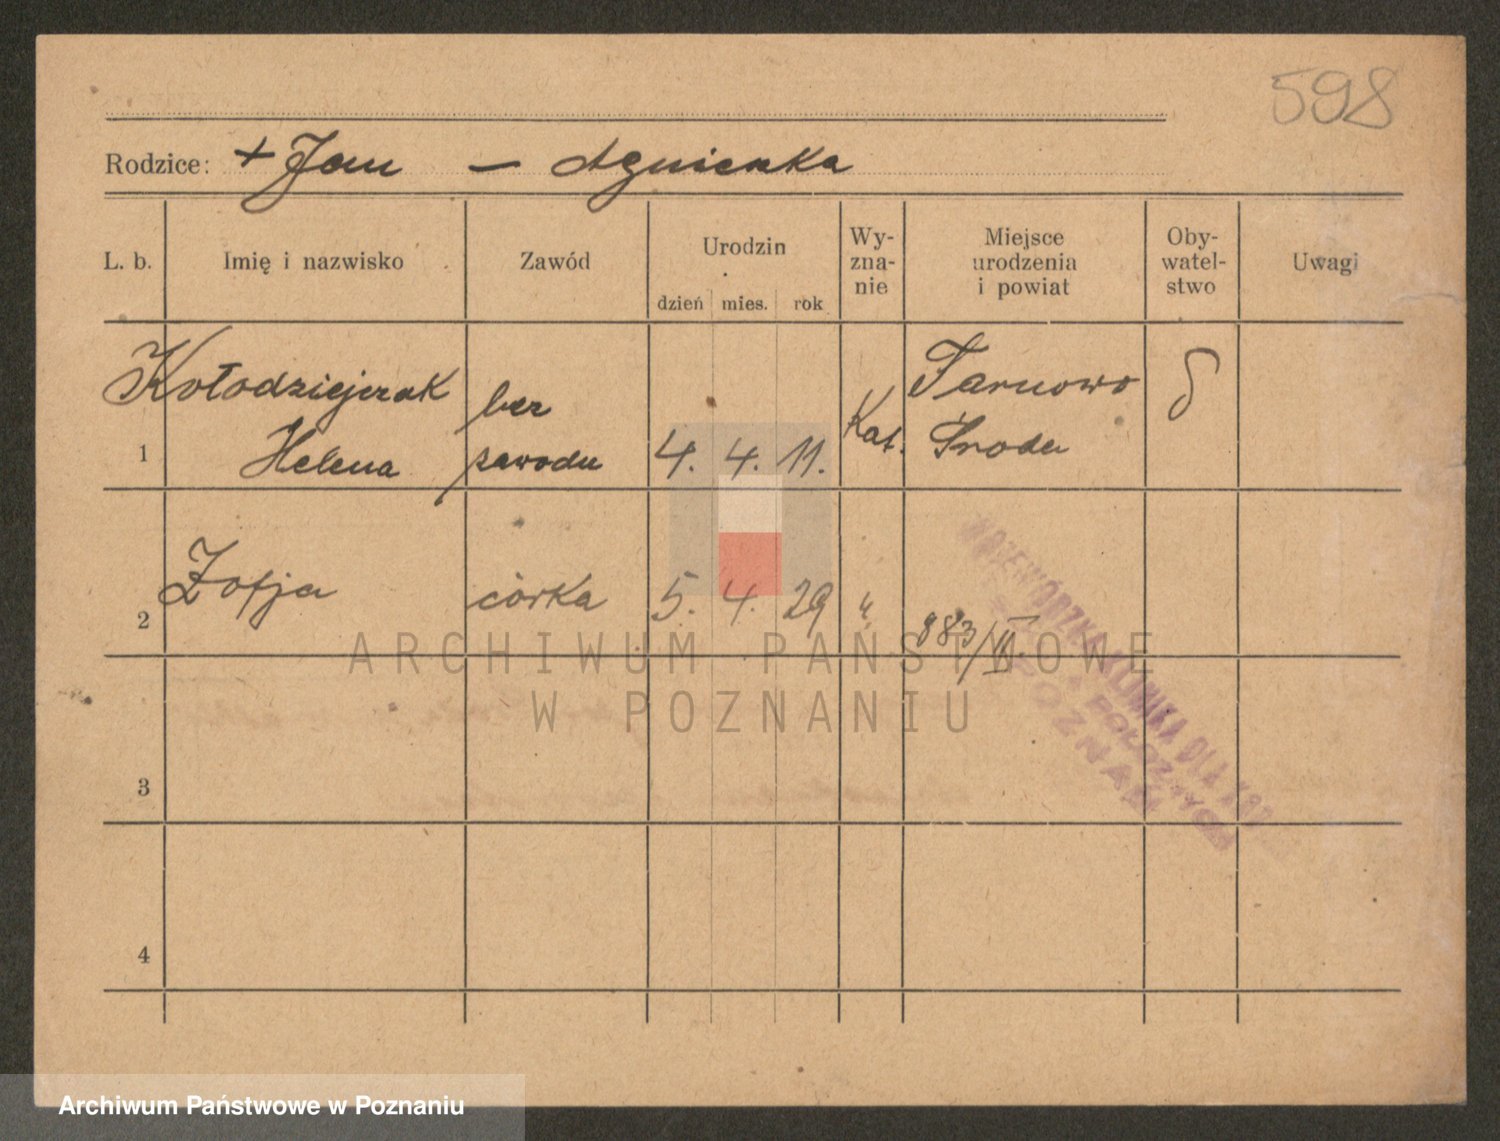 598
Rodzice: + Jan — Agnieszka
L. b. Imię i nazwisko Zawód Urodzin dzień mies. rok Wy-zna-nie Miejsce urodzenia i powiat Oby-watel-stwo Uwagi
1 Kołodziejczak Helena bez zawodu 4. 4. 11. Kat. Tarnowo Środa
2 Zofja córka 5. 4. 29 " 883/II
WOJEWÓDZKA KLINIKA DLA
POŁOŻNYCH
POZNAŃ
3
4
ARCHIWUM PAŃSTWOWE
W POZNANIU
Archiwum Państwowe w Poznaniu